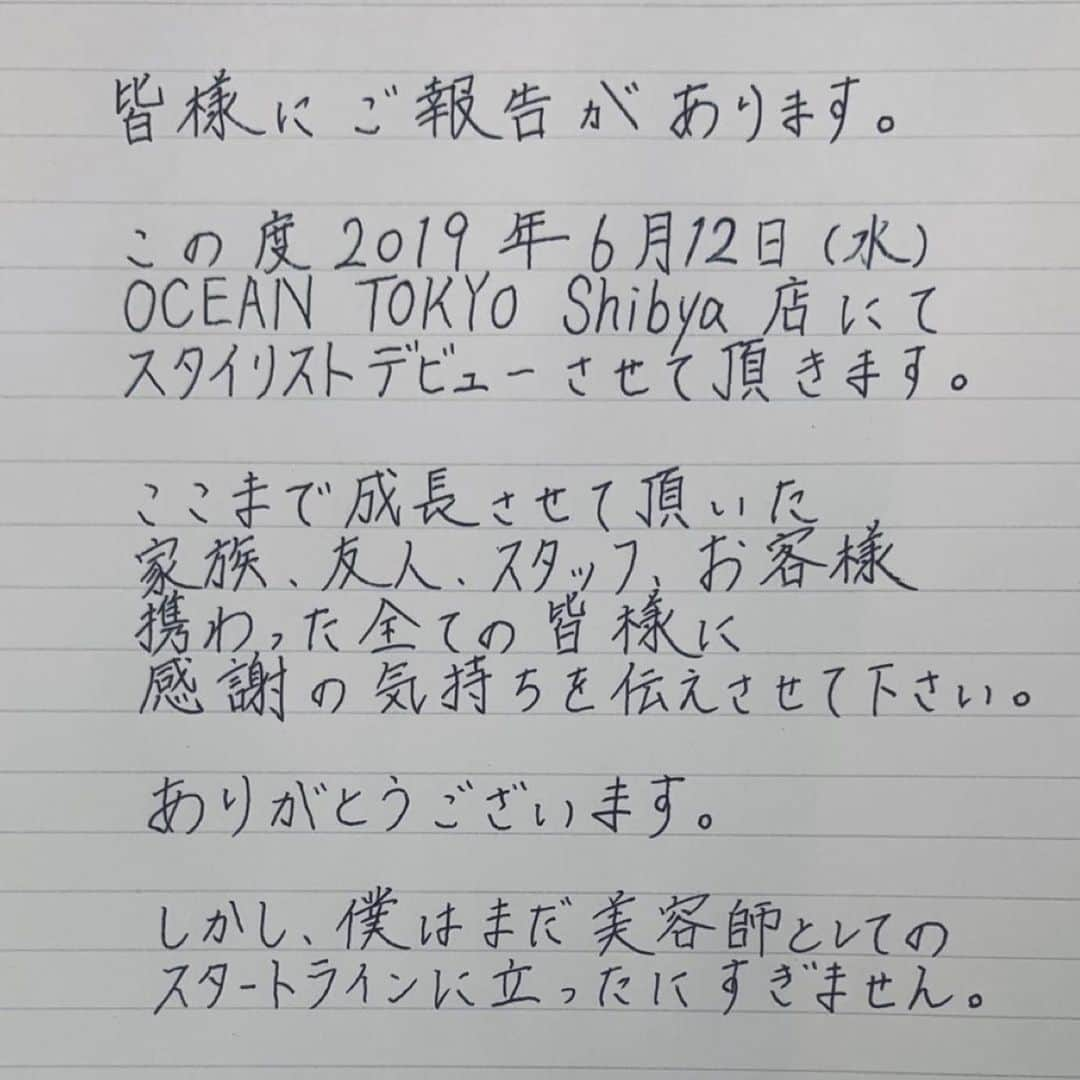 皆様にご報告があります。
この度2019年6月12日(水)
OCEAN TOKYO Shibya店にて
スタイリストデビューさせて頂きます。
ここまで成長させて頂いた
家族、友人、スタッフ、お客様
携わった全ての皆様に
感謝の気持ちを伝えさせて下さい。
ありがとうございます。
しかし、僕はまだ美容師としての
スタートラインに立ったにすぎません。